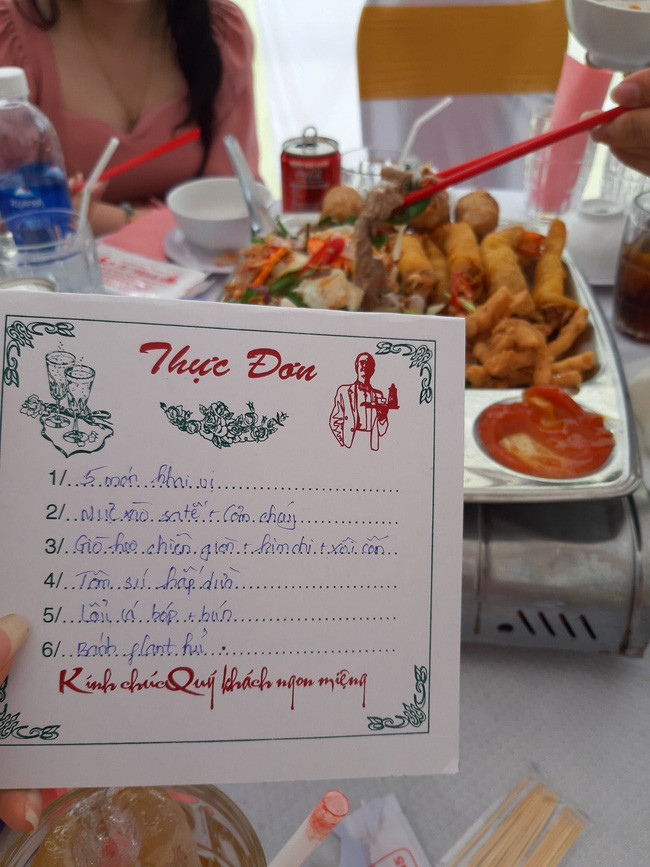 Thực Đơn
1/ 5 món khai vị
2/ Mực xào satế + Cơm cháy
3/ Giò heo chiên giòn + kim chi + xôi cẩm
4/ Tôm sú hấp dừa
5/ Lẩu cá bớp + bún
6/ Bánh plant hủ
Kính chúc Quý khách ngon miệng